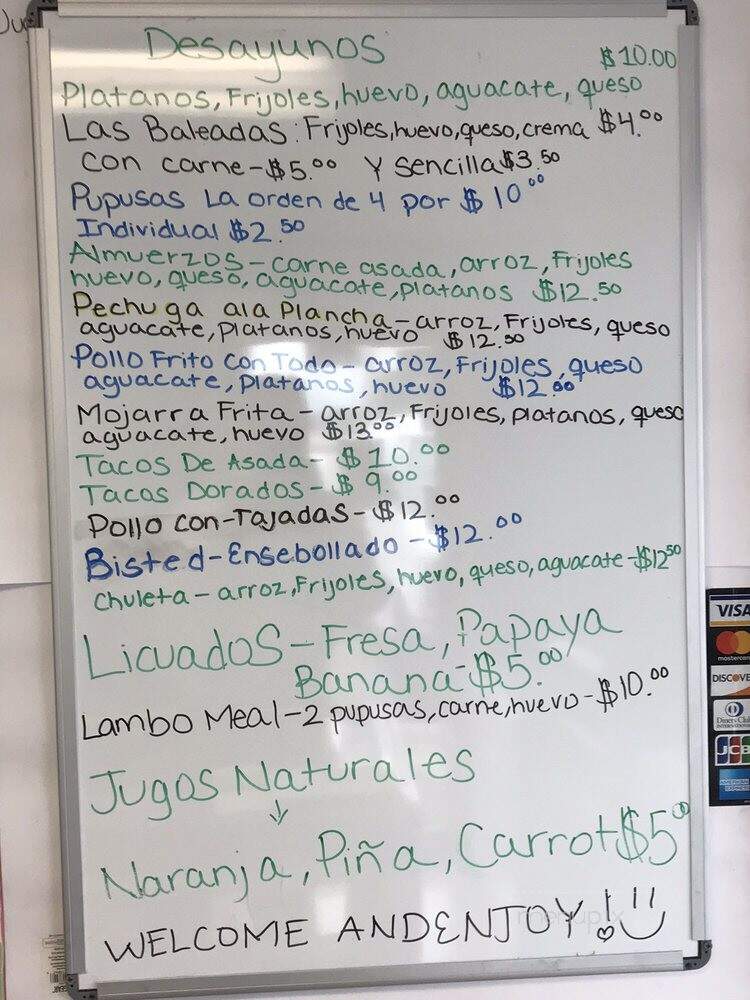 Desayunos $10.00
Platanos, Frijoles, huevo, aguacate, queso
Las Baleadas: Frijoles, huevo, queso, crema $4.00
con carne-$5.00 Y sencilla $3.50
Pupusas La orden de 4 por $10.00
Individual $2.50
Almuerzos-carne asada, arroz, Frijoles
huevo, queso, aguacate, platanos $12.50
Pechuga ala Plancha-arroz, Frijoles, queso
aguacate, platanos, huevo $12.50
Pollo Frito con Todo-arroz, Frijoles, queso
aguacate, platanos, huevo $12.00
Mojarra Frita-arroz, Frijoles, platanos, queso
aguacate, huevo $13.00
Tacos De Asada-$10.00
Tacos Dorados-$9.00
Pollo con-Tajadas-$12.00
Bisted-Ensebollado-$12.00
Chuleta-arroz, Frijoles, huevo, queso, aguacate-$12.50
Licuados-Fresa, Papaya
Banana-$5.00
Lambo Meal-2 pupusas, carne, huevo-$10.00
Jugos Naturales
Naranja, Piña, Carrot $5.00
WELCOME AND ENJOY!
VISA
mastercard
DISCOVE
Diners Club
INTERNATIONAL
JCB
AMERICAN
EXPRESS